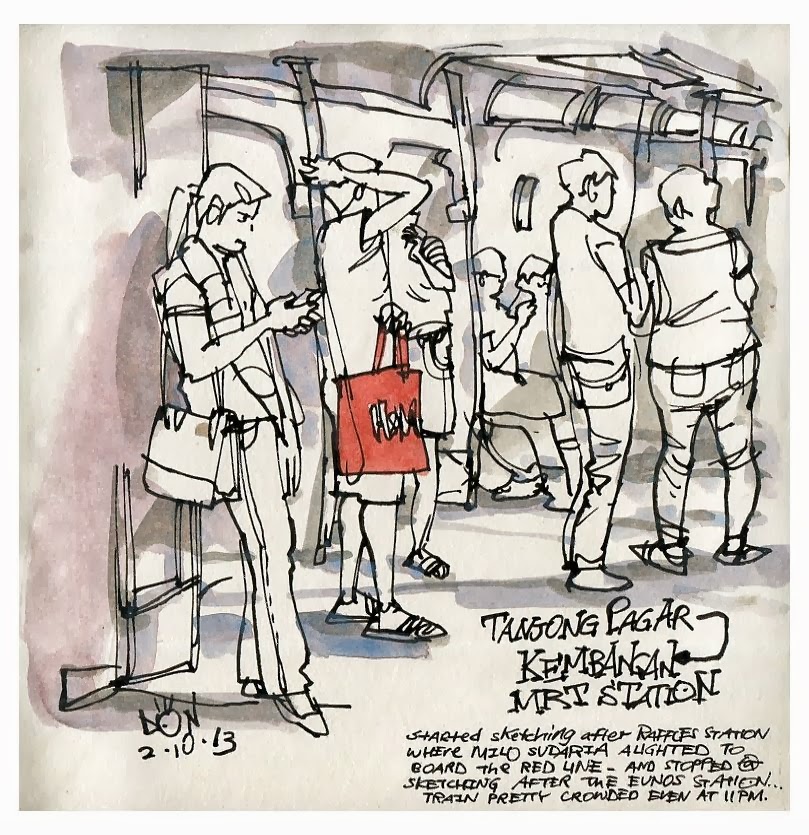 H&M
TANJONG PAGAR
KEMBANGAN
MRT STATION
DON
2.10.13
STARTED sketching after RAFFLES STATION
WHERE MILO SUDARIA ALIGHTED TO
BOARD the RED LINE – AND STOPPED @
SKETCHING AFTER THE EUNOS STATION...
TRAIN PRETTY CROWDED EVEN AT 11 PM.